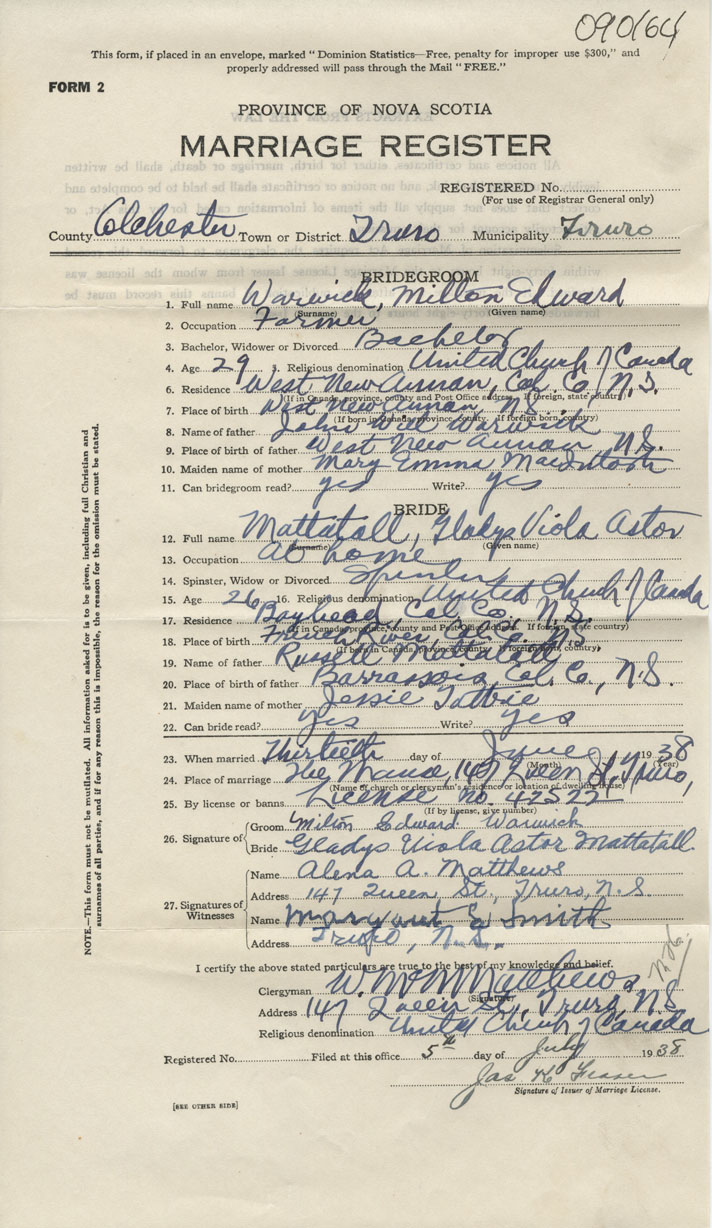 090164
This form, if placed in an envelope, marked "Dominion Statistics—Free, penalty for improper use $300," and
properly addressed will pass through the Mail "FREE."
FORM 2
PROVINCE OF NOVA SCOTIA
MARRIAGE REGISTER
REGISTERED No.
(For use of Registrar General only)
County Colchester Town or District Truro Municipality Truro
BRIDEGROOM
1. Full name Warwick, Milton Edward
(Surname) (Given name)
2. Occupation Farmer
3. Bachelor, Widower or Divorced Bachelor
4. Age 29 5. Religious denomination United Church of Canada
6. Residence West New Annan, Col. Co., N.S.
(If in Canada, province, county and Post Office address. If foreign, state country)
7. Place of birth West New Annan, N.S.
(If born in Canada, province, county. If foreign born, country)
8. Name of father John Warwick
9. Place of birth of father West New Annan N.S.
10. Maiden name of mother Mary Emma MacIntosh
11. Can bridegroom read? yes Write? yes
BRIDE
12. Full name Mattatall, Gladys Viola Astor
(Surname) (Given name)
13. Occupation At home
14. Spinster, Widow or Divorced Spinster
15. Age 26 16. Religious denomination United Church of Canada
17. Residence Bayhead, Col. Co., N.S.
(If in Canada, province, county and Post Office address. If foreign, state country)
18. Place of birth French River, Col. Co. N.S.
(If born in Canada, province, county. If foreign born, country)
19. Name of father Russell Mattatall
20. Place of birth of father Barrassois Col. Co., N.S.
21. Maiden name of mother Jessie Tattrie
22. Can bride read? yes Write? yes
23. When married Thirtieth day of June 1938
(Month) (Year)
24. Place of marriage The Manse, 147 Queen St., Truro,
(Name of church or clergyman's residence or location of dwelling house)
25. By license or banns License no. 42522
(If by license, give number)
26. Signature of Groom Milton Edward Warwick
Bride Gladys Viola Astor Mattatall.
27. Signatures of Witnesses
Name Alena A. Matthews
Address 147 Queen St., Truro, N.S.
Name Margaret E. Smith
Address Truro, N.S.
I certify the above stated particulars are true to the best of my knowledge and belief.
Clergyman W. M. Matthews
(Signature)
Address 147 Queen St., Truro, N.S.
Religious denomination United Church of Canada
Registered No. Filed at this office 5th day of July 1938
Jas K Fraser
Signature of Issuer of Marriage License.
[SEE OTHER SIDE]
NOTE.—This form must not be mutilated. All information asked for is to be given, including full Christian and
surnames of all parties, and if for any reason this is impossible, the reason for the omission must be stated.